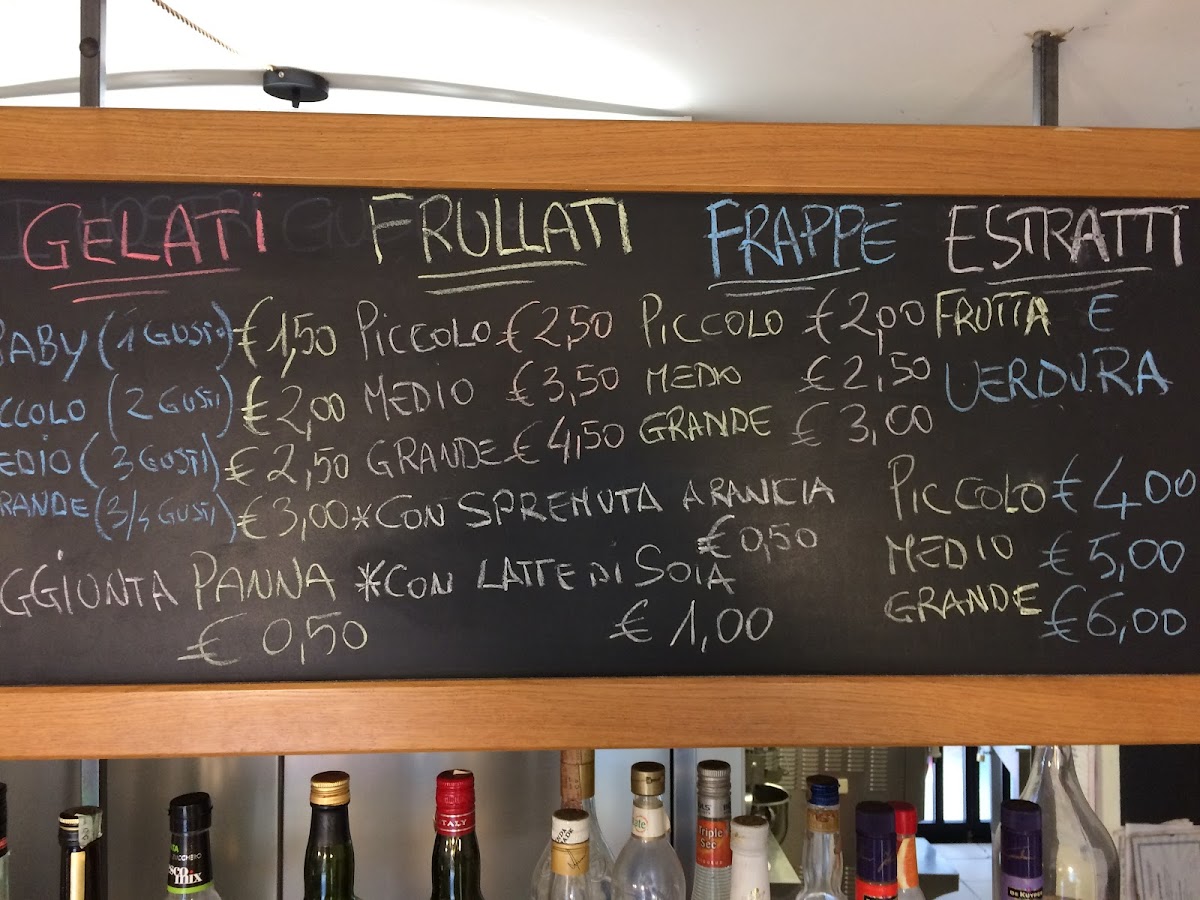 GELATI
BABY (1 GUSTO) €1,50
CCOLO (2 GUSTI) €2,00
EDIO (3 GUSTI) €2,50
RANDE (3/4 GUSTI) €3,00
GGIUNTA PANNA
€ 0,50
FRULLATI
PICCOLO €2,50
MEDIO €3,50
GRANDE €4,50
*CON SPREMUTA ARANCIA
€0,50
*CON LATTE DI SOIA
€ 1,00
FRAPPE
PICCOLO €2,00
MEDIO €2,50
GRANDE € 3,00
ESTRATTI
FRUTTA E
VERDURA
PICCOLO € 4,00
MEDIO € 5,00
GRANDE €6,00
ITALY
Triple
Sec
DE KUYPER
mix